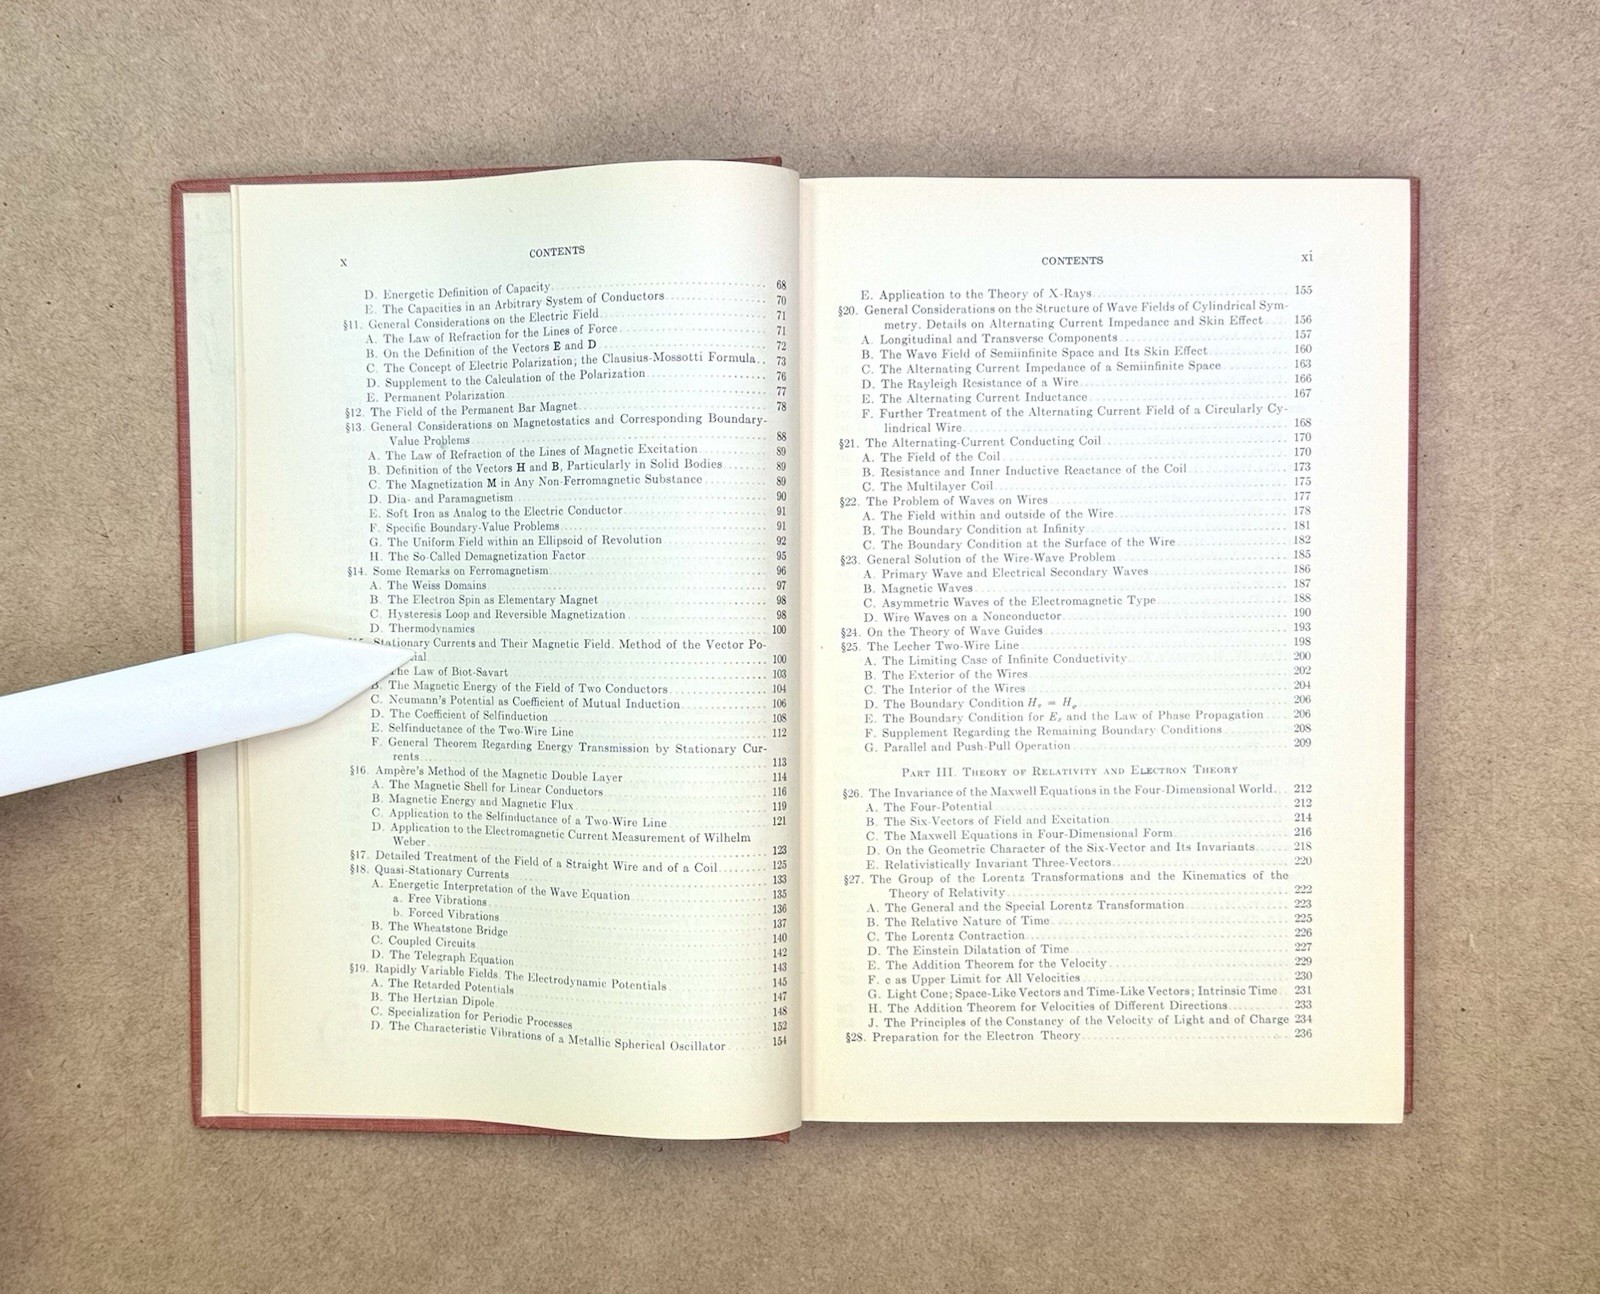 x
CONTENTS
D. Energetic Definition of Capacity 68
E. The Capacities in an Arbitrary System of Conductors 70
§11. General Considerations on the Electric Field 71
A. The Law of Refraction for the Lines of Force 71
B. On the Definition of the Vectors E and D 72
C. The Concept of Electric Polarization; the Clausius-Mossotti Formula 73
D. Supplement to the Calculation of the Polarization 76
E. Permanent Polarization 77
§12. The Field of the Permanent Bar Magnet 78
§13. General Considerations on Magnetostatics and Corresponding Boundary-
Value Problems 88
A. The Law of Refraction of the Lines of Magnetic Excitation 89
B. Definition of the Vectors H and B, Particularly in Solid Bodies 89
C. The Magnetization M in Any Non-Ferromagnetic Substance 89
D. Dia- and Paramagnetism 90
E. Soft Iron as Analog to the Electric Conductor 91
F. Specific Boundary-Value Problems 91
G. The Uniform Field within an Ellipsoid of Revolution 92
H. The So-Called Demagnetization Factor 95
§14. Some Remarks on Ferromagnetism 96
A. The Weiss Domains 97
B. The Electron Spin as Elementary Magnet 98
C. Hysteresis Loop and Reversible Magnetization 98
D. Thermodynamics 100
Stationary Currents and Their Magnetic Field. Method of the Vector Po-
100
The Law of Biot-Savart 103
B. The Magnetic Energy of the Field of Two Conductors 104
C. Neumann's Potential as Coefficient of Mutual Induction 106
D. The Coefficient of Selfinduction 108
E. Selfinductance of the Two-Wire Line 112
F. General Theorem Regarding Energy Transmission by Stationary Cur-
rents 113
§16. Ampère's Method of the Magnetic Double Layer 114
A. The Magnetic Shell for Linear Conductors 116
B. Magnetic Energy and Magnetic Flux 119
C. Application to the Selfinductance of a Two-Wire Line 121
D. Application to the Electromagnetic Current Measurement of Wilhelm
Weber 123
§17. Detailed Treatment of the Field of a Straight Wire and of a Coil 125
§18. Quasi-Stationary Currents 133
A. Energetic Interpretation of the Wave Equation 135
a. Free Vibrations 136
b. Forced Vibrations 137
B. The Wheatstone Bridge 140
C. Coupled Circuits 142
D. The Telegraph Equation 143
§19. Rapidly Variable Fields. The Electrodynamic Potentials 145
A. The Retarded Potentials 147
B. The Hertzian Dipole 148
C. Specialization for Periodic Processes 152
D. The Characteristic Vibrations of a Metallic Spherical Oscillator 154
CONTENTS
xi
E. Application to the Theory of X-Rays 155
§20. General Considerations on the Structure of Wave Fields of Cylindrical Sym-
metry. Details on Alternating Current Impedance and Skin Effect 156
A. Longitudinal and Transverse Components 157
B. The Wave Field of Semiinfinite Space and Its Skin Effect 160
C. The Alternating Current Impedance of a Semiinfinite Space 163
D. The Rayleigh Resistance of a Wire 166
E. The Alternating Current Inductance 167
F. Further Treatment of the Alternating Current Field of a Circularly Cy-
lindrical Wire 168
§21. The Alternating-Current Conducting Coil 170
A. The Field of the Coil 170
B. Resistance and Inner Inductive Reactance of the Coil 173
C. The Multilayer Coil 175
§22. The Problem of Waves on Wires 177
A. The Field within and outside of the Wire 178
B. The Boundary Condition at Infinity 181
C. The Boundary Condition at the Surface of the Wire 182
§23. General Solution of the Wire-Wave Problem 185
A. Primary Wave and Electrical Secondary Waves 186
B. Magnetic Waves 187
C. Asymmetric Waves of the Electromagnetic Type 188
D. Wire Waves on a Nonconductor 190
§24. On the Theory of Wave Guides 193
§25. The Lecher Two-Wire Line 198
A. The Limiting Case of Infinite Conductivity 200
B. The Exterior of the Wires 202
C. The Interior of the Wires 204
D. The Boundary Condition 206
E. The Boundary Condition for and the Law of Phase Propagation 206
F. Supplement Regarding the Remaining Boundary Conditions 208
G. Parallel and Push-Pull Operation 209
PART III. THEORY OF RELATIVITY AND ELECTRON THEORY
§26. The Invariance of the Maxwell Equations in the Four-Dimensional World 212
A. The Four-Potential 212
B. The Six-Vectors of Field and Excitation 214
C. The Maxwell Equations in Four-Dimensional Form 216
D. On the Geometric Character of the Six-Vector and Its Invariants 218
E. Relativistically Invariant Three-Vectors 220
§27. The Group of the Lorentz Transformations and the Kinematics of the
Theory of Relativity 222
A. The General and the Special Lorentz Transformation 223
B. The Relative Nature of Time 225
C. The Lorentz Contraction 226
D. The Einstein Dilatation of Time 227
E. The Addition Theorem for the Velocity 229
F. c as Upper Limit for All Velocities 230
G. Light Cone; Space-Like Vectors and Time-Like Vectors; Intrinsic Time 231
H. The Addition Theorem for Velocities of Different Directions 233
J. The Principles of the Constancy of the Velocity of Light and of Charge 234
§28. Preparation for the Electron Theory 236